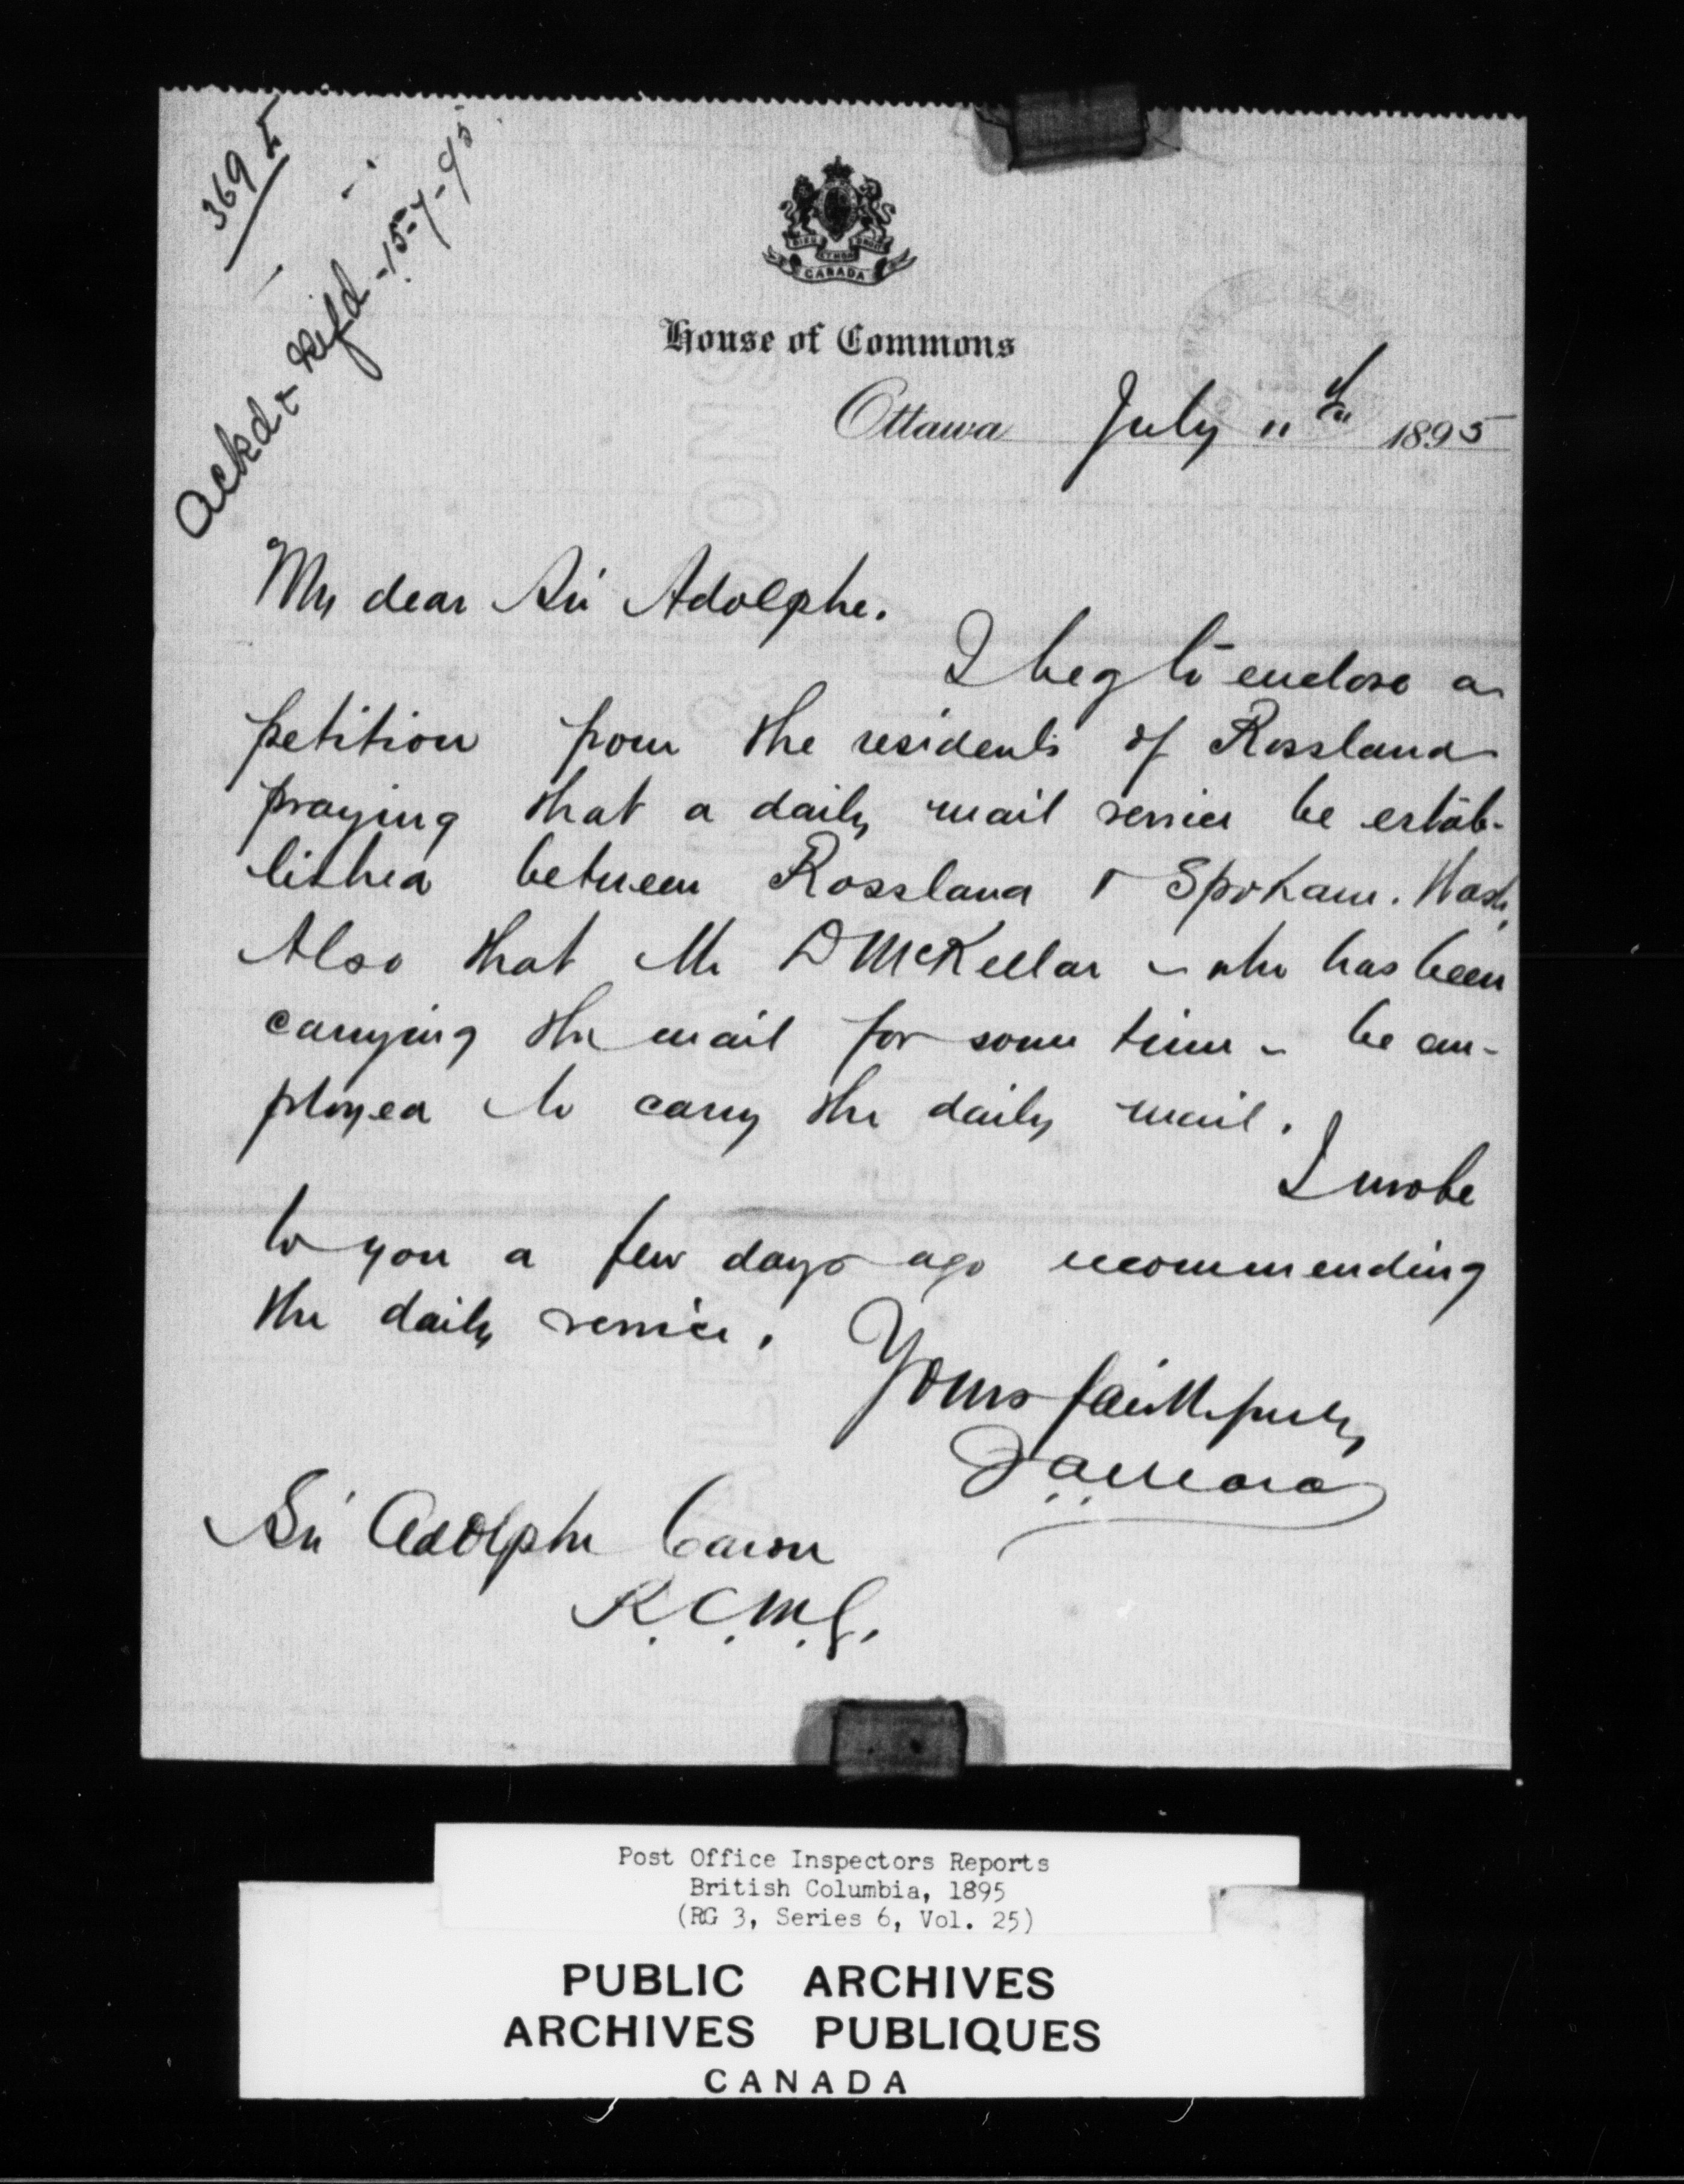 369 I
Ackd & Refd - 15-7-95
CANADA
House of Commons
Ottawa July 11th 1895
My dear Sir Adolphe.
I beg to enclose a
petition from the residents of Rossland
praying that a daily mail service be estab-
lished between Rossland & Spokane. Wash.
Also that Mr D McKellar - who has been
carrying the mail for some time - be em-
ployed to carry the daily mail.
I wrote
to you a few days ago recommending
the daily service.
Yours faithfully
J A Mara
Sir Adolphe Caron
K.C.M.G.
Post Office Inspectors Reports
British Columbia, 1895
(RG 3, Series 6, Vol. 25)
PUBLIC ARCHIVES
ARCHIVES PUBLIQUES
CANADA